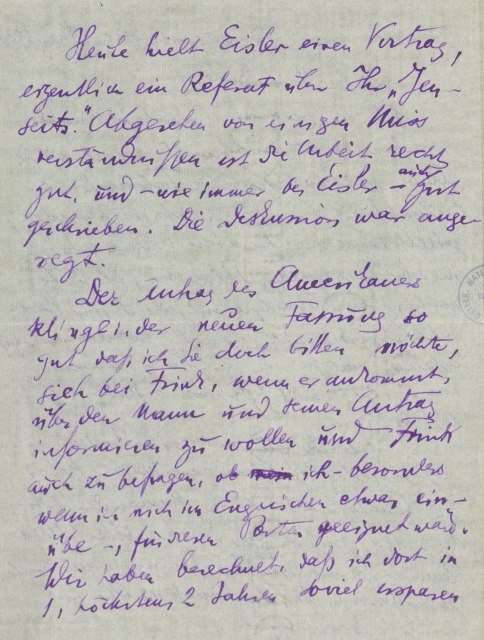 Heute hielt Eisler einen Vortrag,
eigentlich ein Referat über Ihr „Jen-
seits." Abgesehen von einigen Miss
verständnissen ist die Arbeit recht
gut, und – wie immer bei Eisler – auch gut
geschrieben. Die Diskussion war ange-
regt.
Der Antrag des Amerikaners
klingt in der neuen Fassung so
gut, daß ich Sie doch bitten möchte,
sich bei Frink, wenn er ankommt,
über den Mann und seinen Antrag
informieren zu wollen und Frink
auch zu befragen, ob ich – besonders
wenn ich mich im Englischen etwas ein-
übe –, für diesen Posten geeignet wäre.
Wir haben berechnet, daß ich dort in
1, höchstens 2 Jahren soviel ersparen